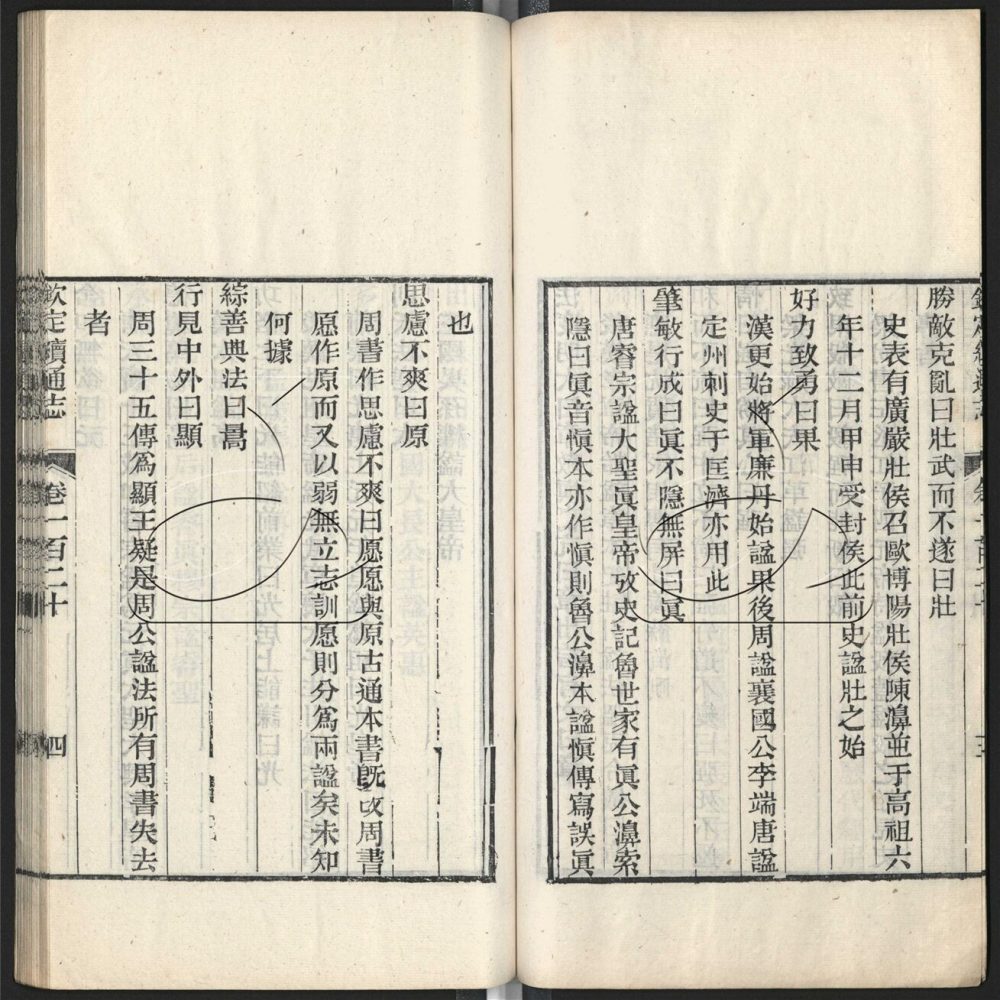 勝敵克亂曰壯武而不遂曰壯
史表有廣嚴壯侯召歐博陽壯侯陳濞並于高祖六
年十二月甲申受封侯此前史諡壯之始
好力致勇曰果
漢更始將軍廉丹始諡果後周諡襄國公李端唐諡
定州刺史于匡濟亦用此
肇敏行成曰眞不隱無屏曰眞
唐睿宗諡大聖眞皇帝攷史記魯世家有眞公濞索
隱曰眞音愼本亦作愼則魯公濞本諡愼傳寫誤眞
也
思慮不爽曰原
周書作思慮不爽曰愿愿與原古通本書旣改周書
愿作原而又以弱無立志訓愿則分爲兩諡矣未知
何據
綜善典法曰暠
行見中外曰顯
周三十五傳爲顯王疑是周公諡法所有周書失去
者
欽定續通志 卷一百二十 四